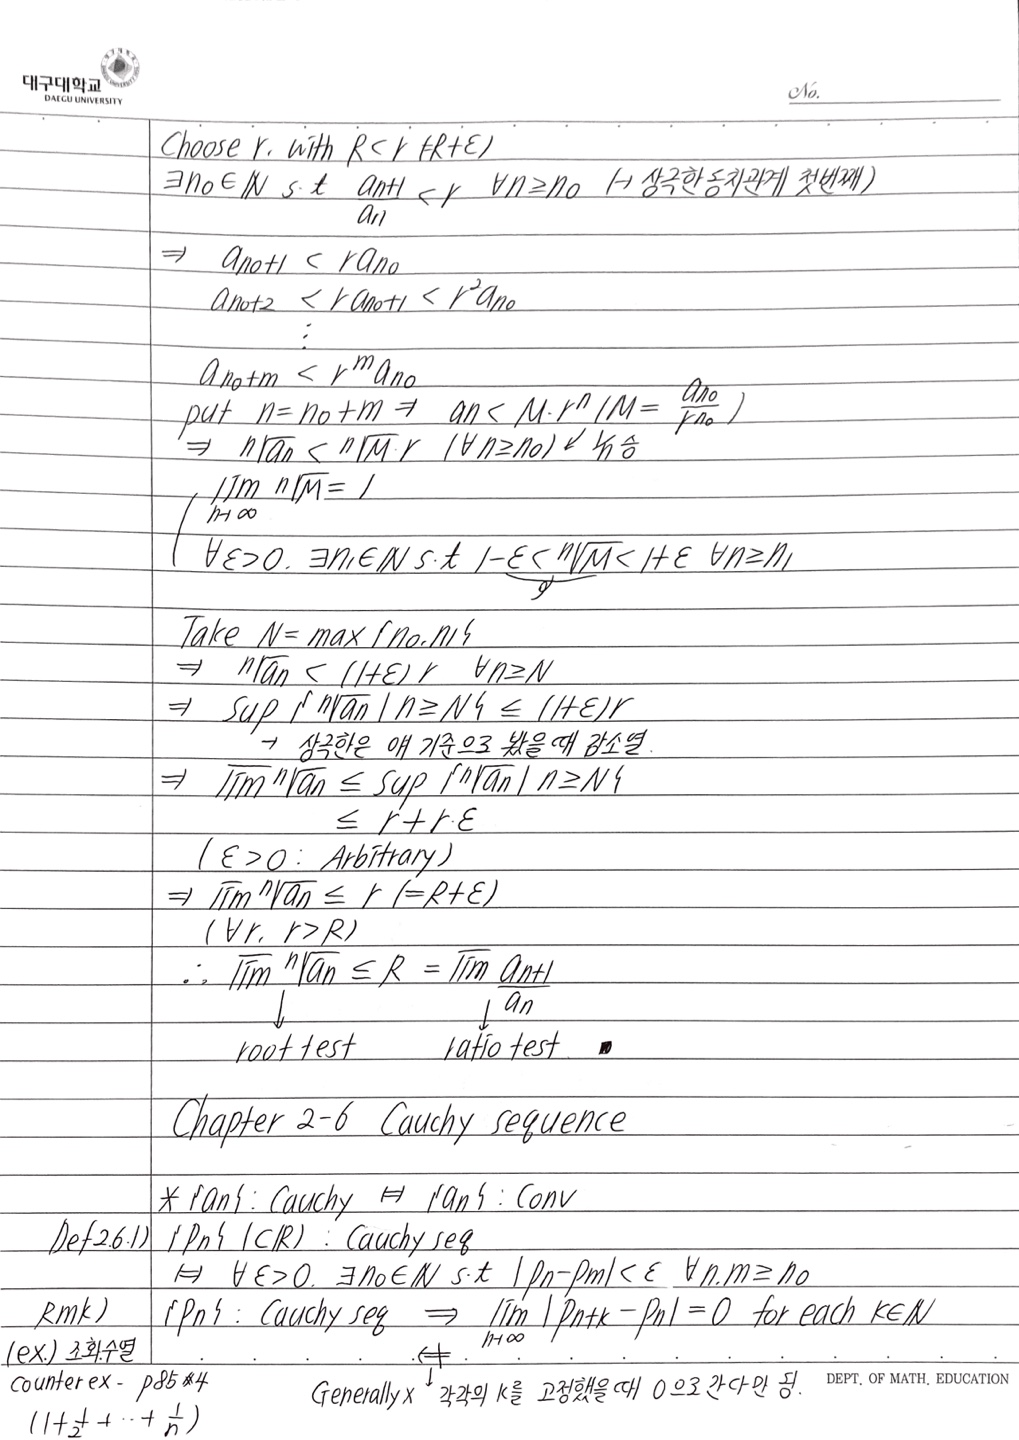 대구대학교
DAEGU UNIVERSITY
No.
Choose r. with R<r (R+ε)
∃n₀∈ℕ s.t aₙ₊₁/aₙ < r ∀n≥n₀ (→ 상극한 동치관계 첫번째)
⇒ aₙ₀₊₁ < raₙ₀
aₙ₀₊₂ < raₙ₀₊₁ < r²aₙ₀
⋮
aₙ₀₊ₘ < rᵐaₙ₀
put n=n₀+m ⇒ aₙ < M·rⁿ (M= aₙ₀/rⁿ⁰)
⇒ ⁿ√aₙ < ⁿ√M·r (∀n≥n₀) ↙ 1/n승
lim n→∞ ⁿ√M = 1
∀ε>0. ∃n₁∈ℕ s.t 1-ε < ⁿ√M < 1+ε ∀n≥n₁
Take N= max{n₀.n₁}
⇒ ⁿ√aₙ < (1+ε)r ∀n≥N
⇒ sup{ⁿ√aₙ | n≥N} ≤ (1+ε)r
→ 상극한은 얘 기준으로 봤을때 감소열.
⇒ l̅i̅m̅ ⁿ√aₙ ≤ sup{ⁿ√aₙ | n≥N}
≤ r+r·ε
(ε>0: Arbitrary)
⇒ l̅i̅m̅ ⁿ√aₙ ≤ r (=R+ε)
(∀r, r>R)
∴ l̅i̅m̅ ⁿ√aₙ ≤ R = l̅i̅m̅ aₙ₊₁/aₙ
↓ ↓
root test ratio test ▪
Chapter 2-6 Cauchy sequence
* {aₙ}: Cauchy ⇔ {aₙ}: Conv
Def2.6.1) {Pₙ} (⊂ℝ) : Cauchy seq
⇔ ∀ε>0. ∃n₀∈ℕ s.t |Pₙ-Pₘ|<ε ∀n.m≥n₀
Rmk) {Pₙ}: Cauchy seq ⇒ lim n→∞ |Pₙ₊ₖ-Pₙ|=0 for each K∈ℕ
(ex.) 조화수열 ⇍
counter ex - p85 #4 Generally x ↓ 각각의 K를 고정했을때 0으로 간다만 됨. DEPT. OF MATH. EDUCATION
(1+1/2+··+1/n)